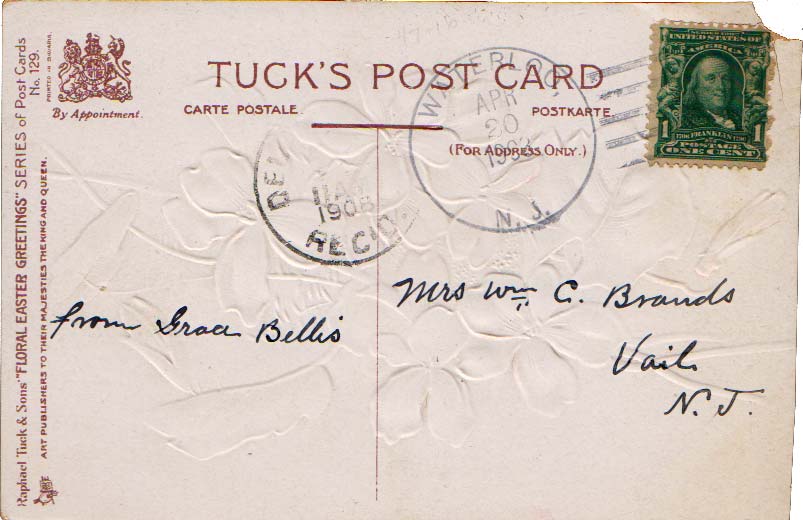 Raphael Tuck & Sons' "FLORAL EASTER GREETINGS" SERIES of Post Cards
No. 129.
PRINTED IN BAVARIA.
ART PUBLISHERS TO THEIR MAJESTIES THE KING AND QUEEN.
By Appointment.
TUCK'S POST CARD
CARTE POSTALE.
POSTKARTE.
(FOR ADDRESS ONLY.)
WATERLOO
APR
20
N. J.
1908
REC'D.
SERIES 1902
UNITED STATES OF
AMERICA
1 FRANKLIN 1
POSTAGE
ONE CENT
from Grace Bellis
Mrs Wm C. Brands
Vail
N. J.